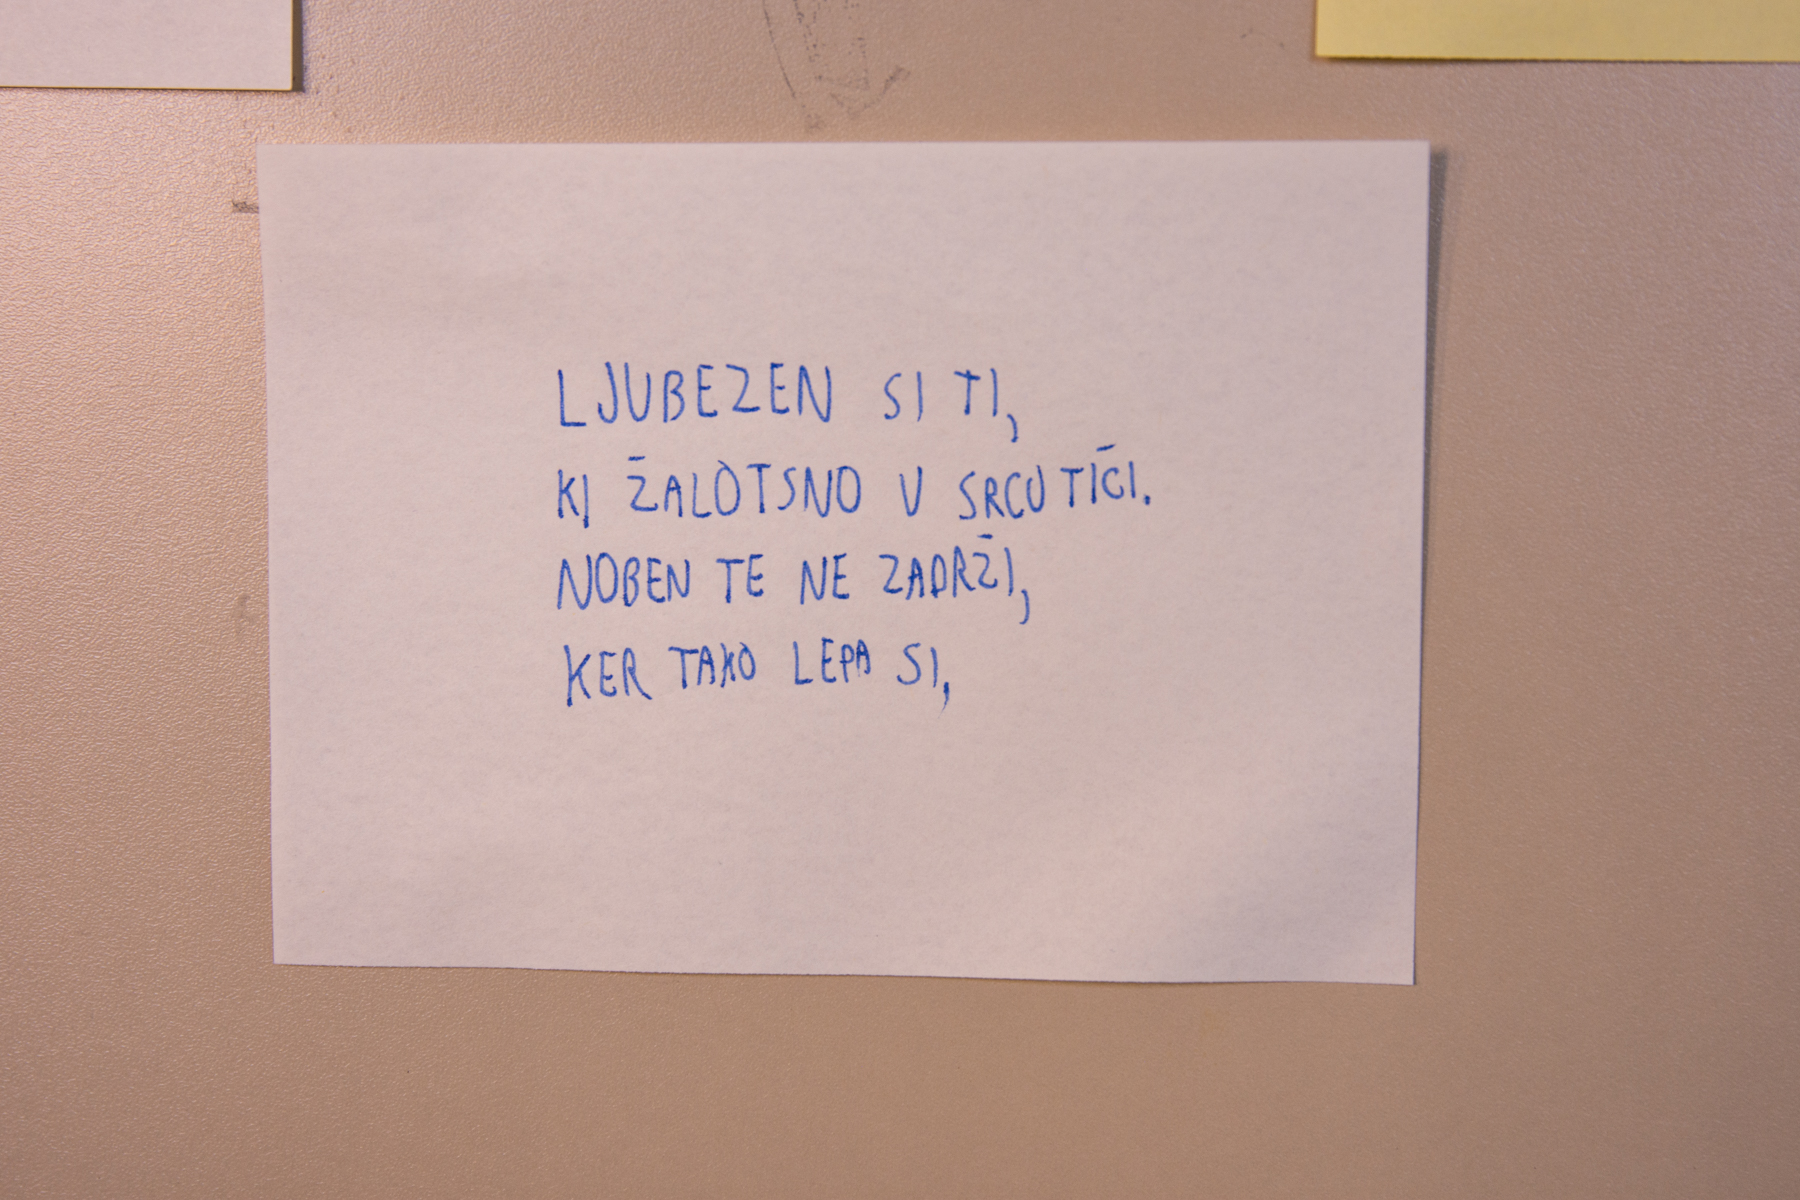 LJUBEZEN SI TI,
KI ŽALOTSNO V SRCU TIČI.
NOBEN TE NE ZADRŽI,
KER TAKO LEPA SI,